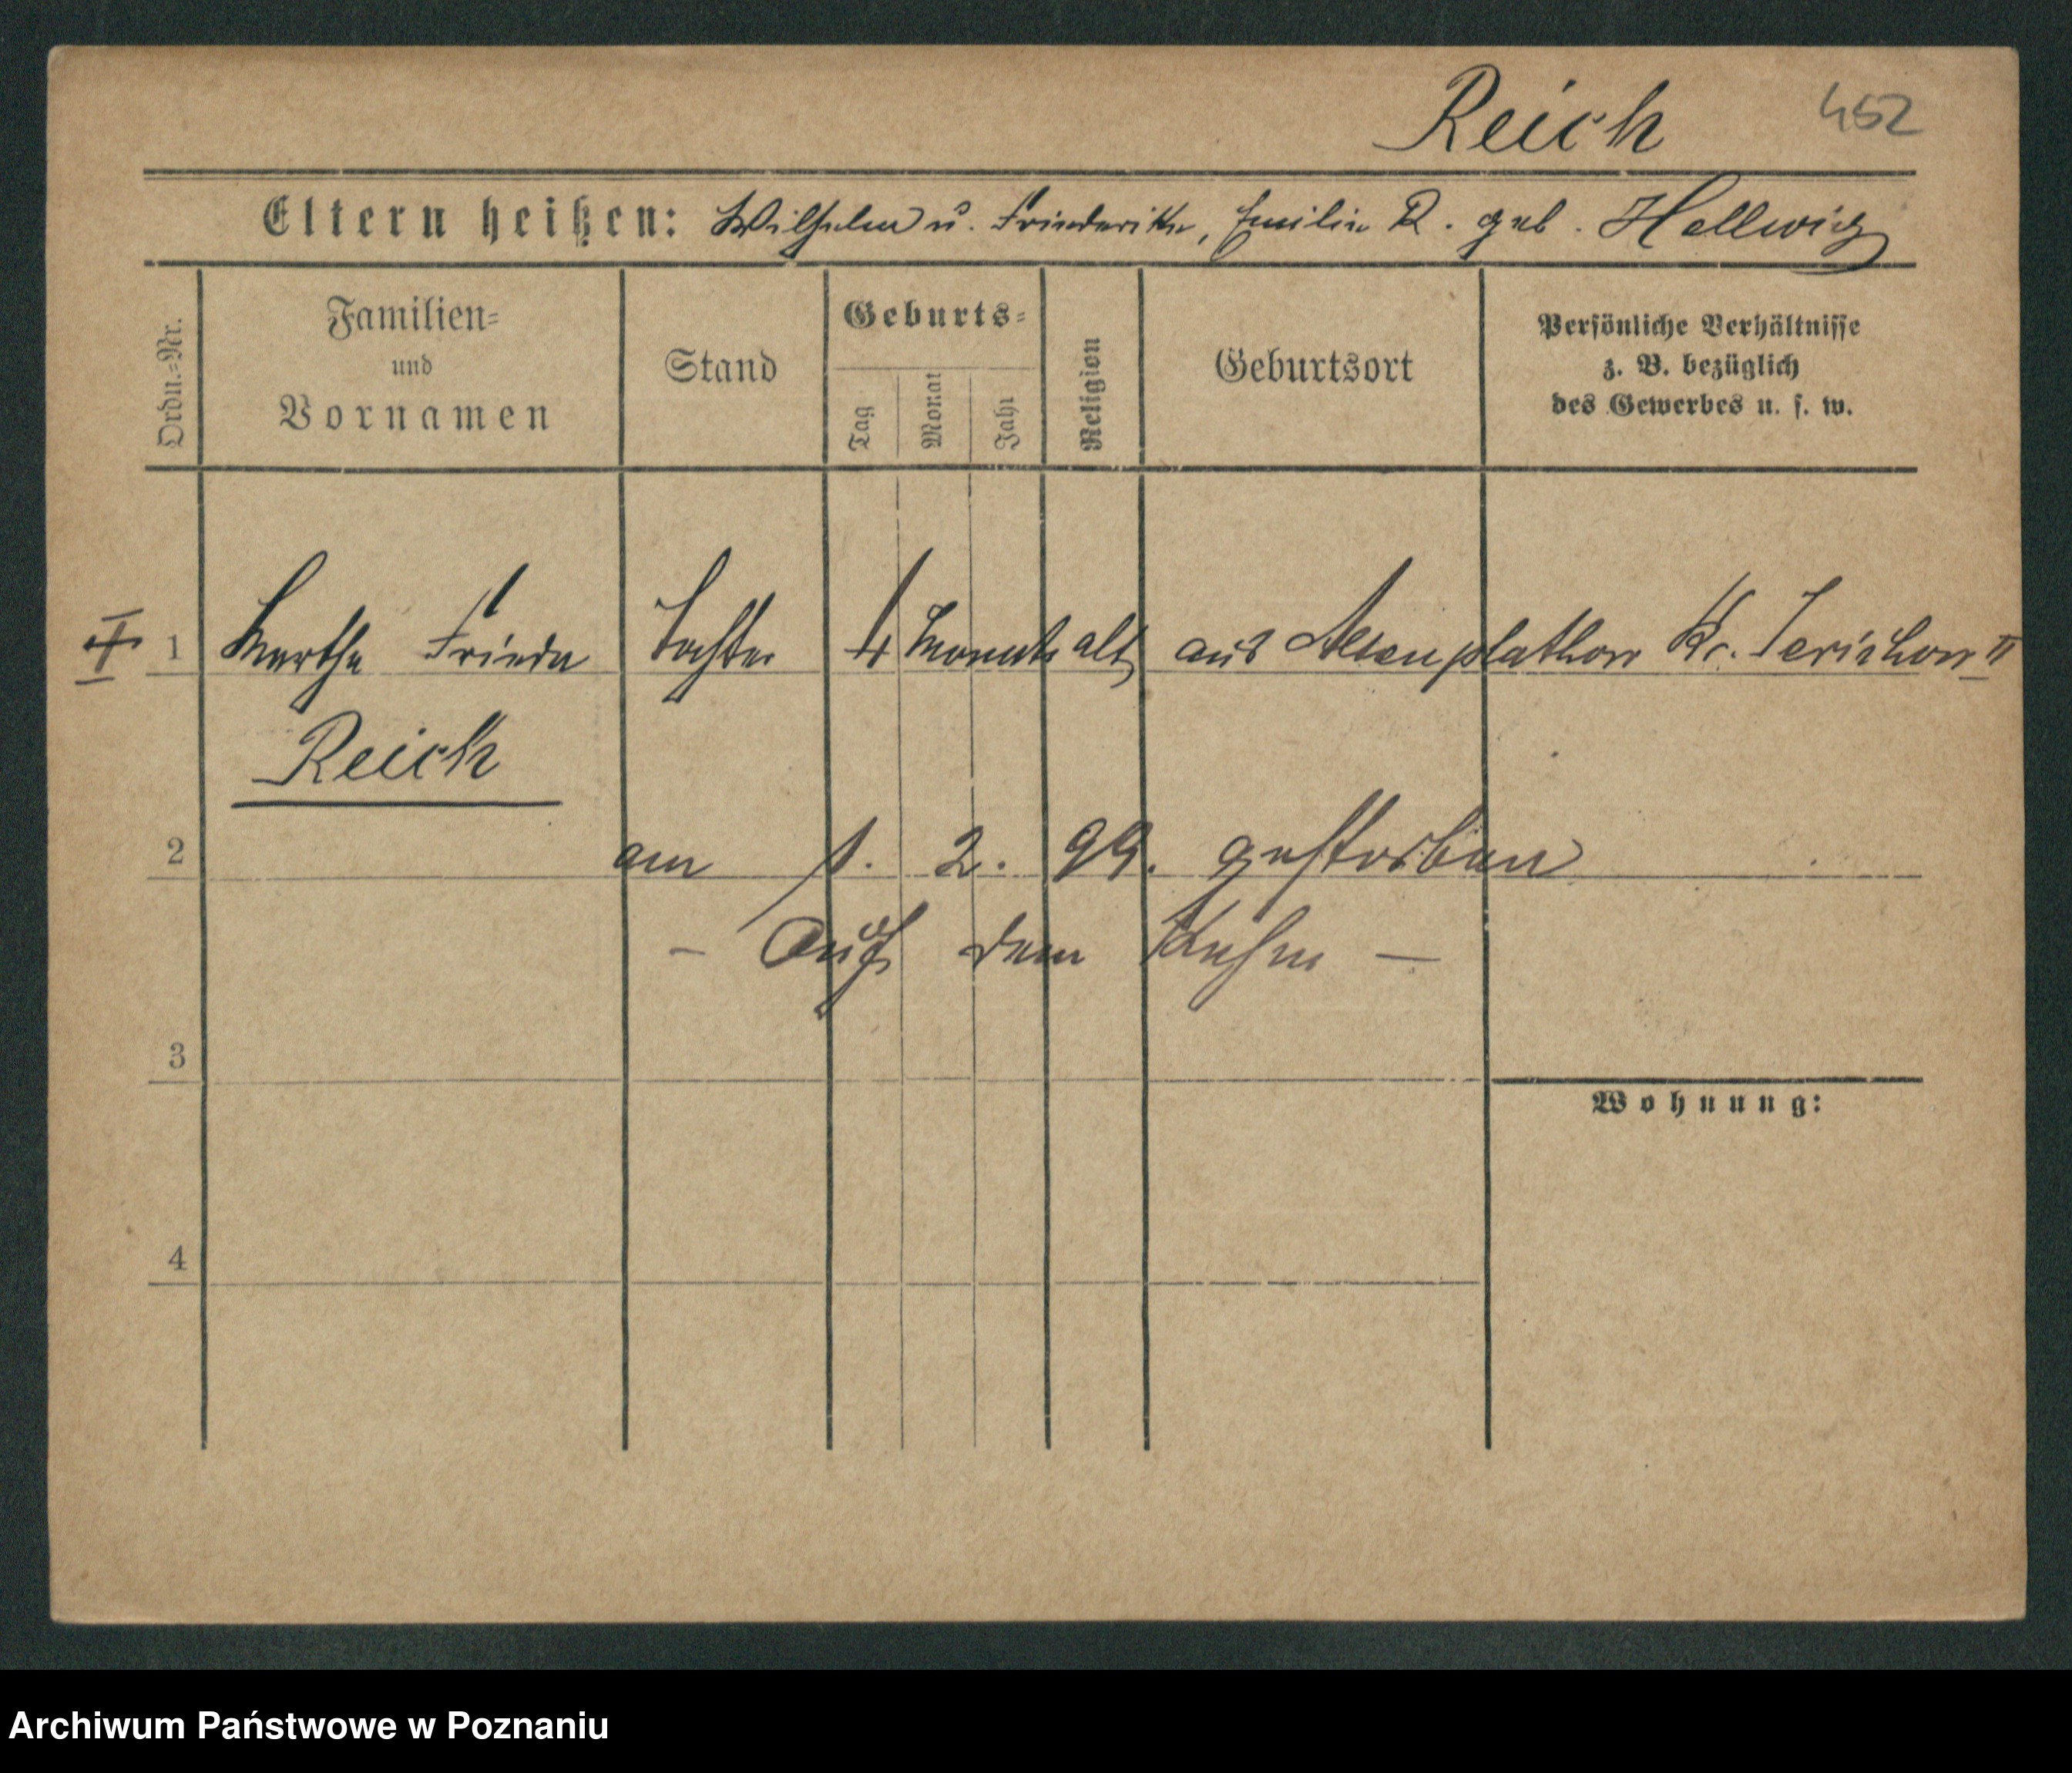 Reich 452
Eltern heißen: Wilhelm u. Friederike, Emilie R. geb. Hellwig
Ordn.=Nr.
Familien=
und
Vornamen
Stand
Geburts=
Tag
Monat
Jahr
Religion
Geburtsort
Persönliche Verhältnisse
z. B. bezüglich
des Gewerbes u. s. w.
1 Marthe Frieda Tochter 4 Monate alt aus Altenplathow Kr. Jerichow II
Reich
2 am 1. 2. 99. gestorben
- Auf dem Kahn -
3
Wohnung:
4
Archiwum Państwowe w Poznaniu